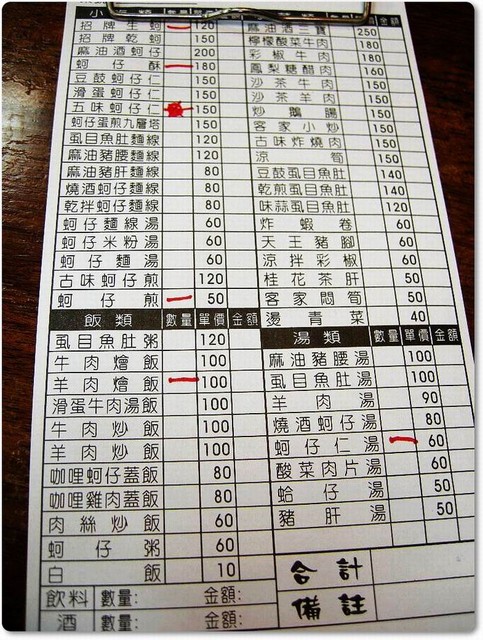 招牌生蚵 120
招牌乾蚵 150
麻油酒蚵仔 200
蚵仔酥 180
豆鼓蚵仔仁 150
滑蛋蚵仔仁 150
五味蚵仔仁 150
蚵仔蛋煎九層塔 150
虱目魚肚麵線 150
麻油豬腰麵線 120
麻油豬肝麵線 80
燒酒蚵仔麵線 80
乾拌蚵仔麵線 80
蚵仔麵線湯 60
蚵仔米粉湯 60
蚵仔麵湯 60
古味蚵仔煎 120
蚵仔煎 50
飯類 數量 單價 金額
虱目魚肚粥 120
牛肉燴飯 100
羊肉燴飯 100
滑蛋牛肉湯飯 100
牛肉炒飯 100
羊肉炒飯 100
咖哩蚵仔蓋飯 80
咖哩雞肉蓋飯 80
肉絲炒飯 60
蚵仔粥 60
白飯 10
飲料 數量: 金額:
酒 數量: 金額:
金額
麻油酒三寶 250
檸檬酸菜牛肉 180
彩椒牛肉 180
鳳梨糖醋肉 160
沙茶牛肉 150
沙茶羊肉 150
炒鵝腸 150
客家小炒 150
古味炸燒肉 150
涼筍 150
豆鼓虱目魚肚 140
乾煎虱目魚肚 140
味蒜虱目魚肚 120
炸蝦卷 60
天王豬腳 60
涼拌彩椒 60
桂花茶肝 50
客家悶筍 50
燙青菜 40
湯類 數量 單價 金額
麻油豬腰湯 100
虱目魚肚湯 100
羊肉湯 90
燒酒蚵仔湯 80
蚵仔仁湯 60
酸菜肉片湯 60
蛤仔湯 50
豬肝湯 50
合計
備註